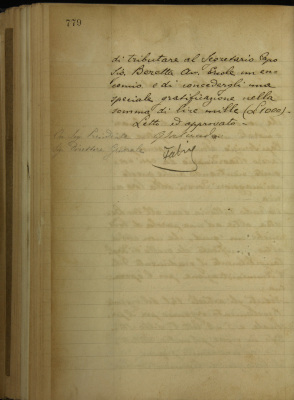 779
di tributare al Secretario Capo
Sig. Beretta Avv. Ercole un en-
comio e di concedergli una
speciale gratificazione nella
somma di lire mille (£1000).-
Letto ed approvato.-
Il Presidente
Fabri